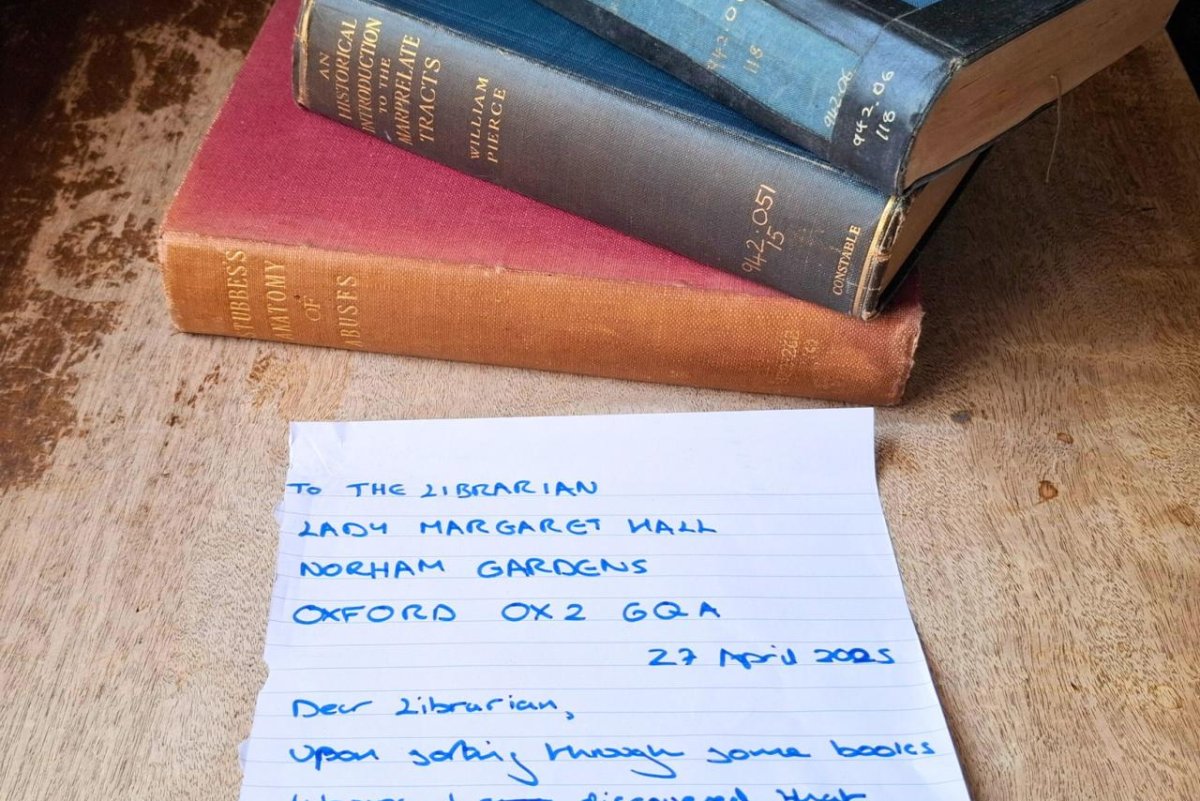 AN
HISTORICAL
INTRODUCTION
TO THE
MARPRELATE
TRACTS
WILLIAM
PIERCE
942.051
15
CONSTABLE
942.06
118
942.06
942.06
118
STUBBES'S
ANATOMY
OF
ABUSES
TO THE LIBRARIAN
LADY MARGARET HALL
NORHAM GARDENS
OXFORD OX2 6QA
27 April 2025
Dear Librarian,
Upon sorting through some books
discovered that